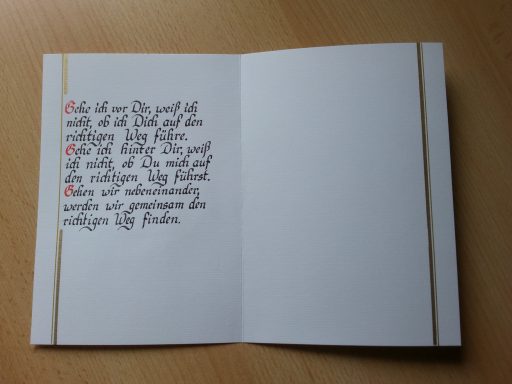 Gehe ich vor Dir, weiß ich
nicht, ob ich Dich auf den
richtigen Weg führe.
Gehe ich hinter Dir, weiß
ich nicht, ob Du mich auf
den richtigen Weg führst.
Gehen wir nebeneinander,
werden wir gemeinsam den
richtigen Weg finden.